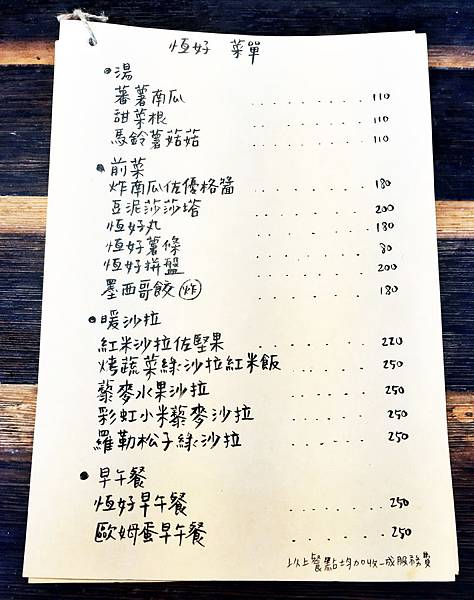 恆好 菜單
•湯
蕃薯南瓜 ........ 110
甜菜根 ........ 110
馬鈴薯菇菇 ........ 110
•前菜
炸南瓜佐優格醬 ........ 180
豆泥莎莎塔 ........ 200
恆好丸 ........ 180
恆好薯條 ........ 80
恆好拼盤 ........ 200
墨西哥餃(炸) ........ 180
•暖沙拉
紅米沙拉佐堅果 ...... 220
烤蔬菜綠沙拉紅米飯 ...... 250
藜麥水果沙拉 ...... 250
彩虹小米藜麥沙拉 ...... 250
羅勒松子綠沙拉 ...... 250
•早午餐
恆好早午餐 ...... 250
歐姆蛋早午餐 ...... 250
以上餐點均加收一成服務費